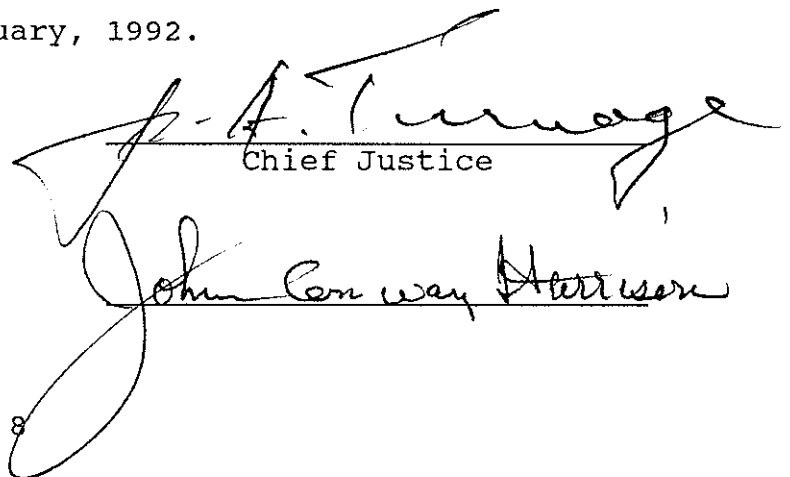 uary, 1992.
J. A. Turnage
Chief Justice
John Conway Harrison
8